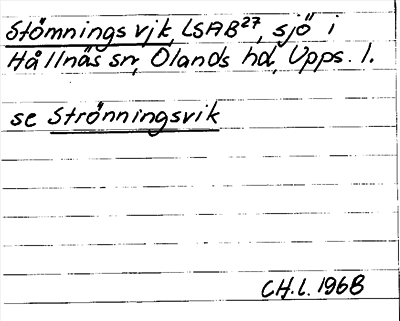 Stömnings vik, LSAB27, sjö i
Hållnäs sn, Olands hd, Upps. l.
se Strönningsvik
CH.L. 1968